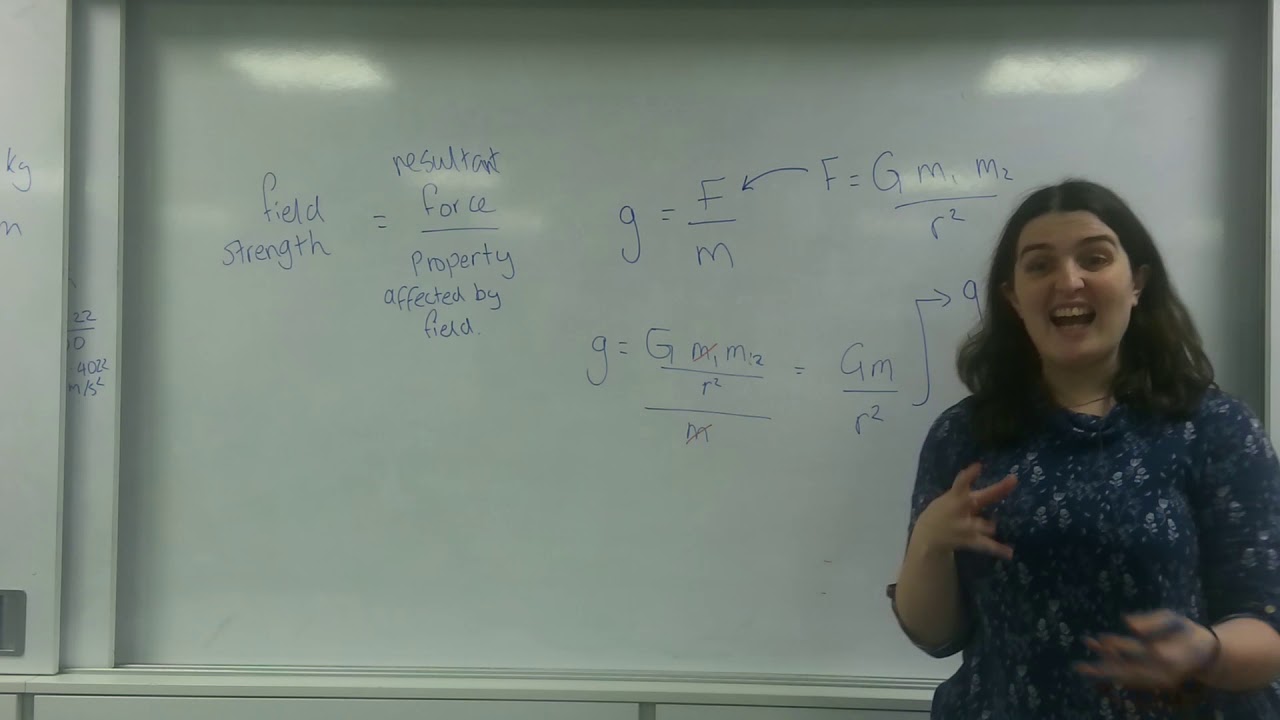 kg
m
22
0
4022
m/s²
field
strength
=
resultant
force
property
affected by
field.
g = F / m
F = G m₁ m₂ / r²
g = G m₁ m₂ / r² / m = Gm / r²
g